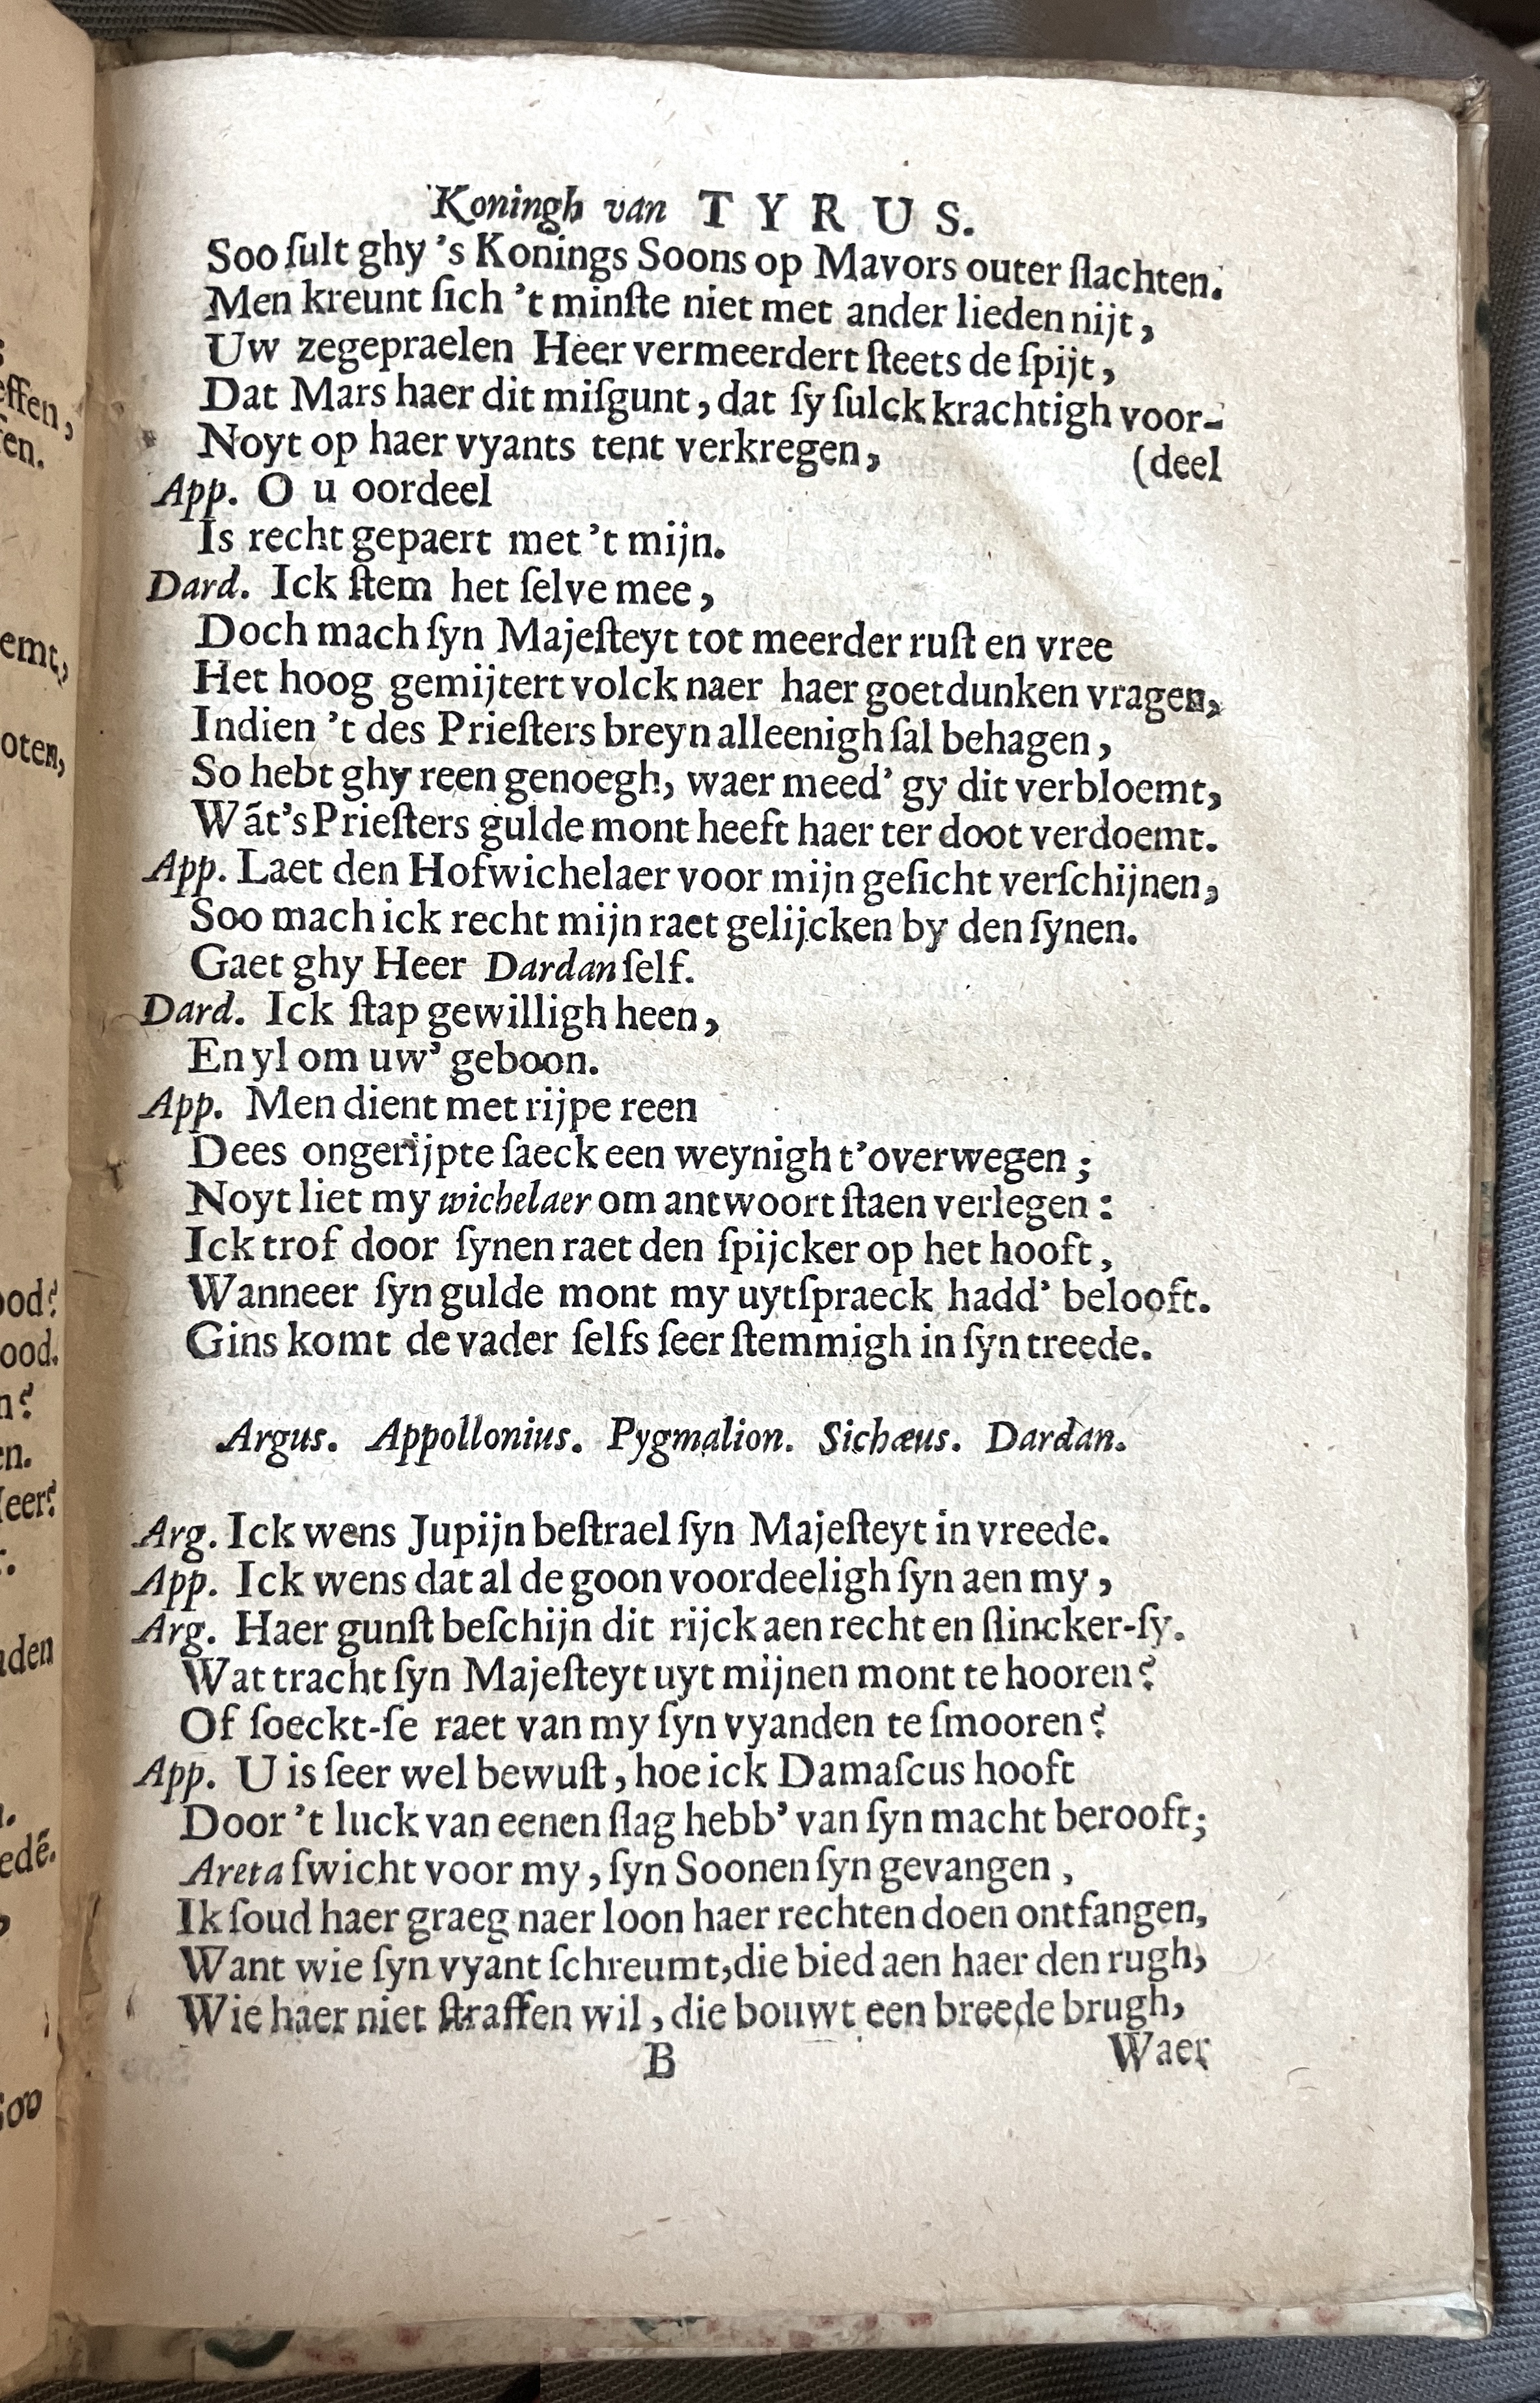 Koningh van TYRUS.
Soo ſult ghy 's Konings Soons op Mavors outer ſlachten.
Men kreunt ſich 't minſte niet met ander lieden nijt,
Uw zegepraelen Heer vermeerdert ſteets de ſpijt,
Dat Mars haer dit miſgunt, dat ſy ſulck krachtigh voor-
Noyt op haer vyants tent verkregen, (deel
App. O u oordeel
Is recht gepaert met 't mijn.
Dard. Ick ſtem het ſelve mee,
Doch mach ſyn Majeſteyt tot meerder ruſt en vree
Het hoog gemijtert volck naer haer goetdunken vragen,
Indien 't des Prieſters breyn alleenigh ſal behagen,
So hebt ghy reen genoegh, waer meed' gy dit verbloemt,
Wãt's Prieſters gulde mont heeft haer ter doot verdoemt.
App. Laet den Hofwichelaer voor mijn geſicht verſchijnen,
Soo mach ick recht mijn raet gelijcken by den ſynen.
Gaet ghy Heer Dardan ſelf.
Dard. Ick ſtap gewilligh heen,
En yl om uw' geboon.
App. Men dient met rijpe reen
Dees ongerijpte ſaeck een weynigh t'overwegen;
Noyt liet my wichelaer om antwoort ſtaen verlegen:
Ick trof door ſynen raet den ſpijcker op het hooft,
Wanneer ſyn gulde mont my uytſpraeck hadd' belooft.
Gins komt de vader ſelfs ſeer ſtemmigh in ſyn treede.
Argus. Appollonius. Pygmalion. Sichæus. Dardan.
Arg. Ick wens Jupijn beſtrael ſyn Majeſteyt in vreede.
App. Ick wens dat al de goon voordeeligh ſyn aen my,
Arg. Haer gunſt beſchijn dit rijck aen recht en ſlincker-ſy.
Wat tracht ſyn Majeſteyt uyt mijnen mont te hooren?
Of ſoeckt-ſe raet van my ſyn vyanden te ſmooren?
App. U is ſeer wel bewuſt, hoe ick Damaſcus hooft
Door 't luck van eenen ſlag hebb' van ſyn macht berooft;
Areta ſwicht voor my, ſyn Soonen ſyn gevangen,
Ik ſoud haer graeg naer loon haer rechten doen ontfangen,
Want wie ſyn vyant ſchreumt, die bied aen haer den rugh,
Wie haer niet ſtraffen wil, die bouwt een breede brugh,
B Waer